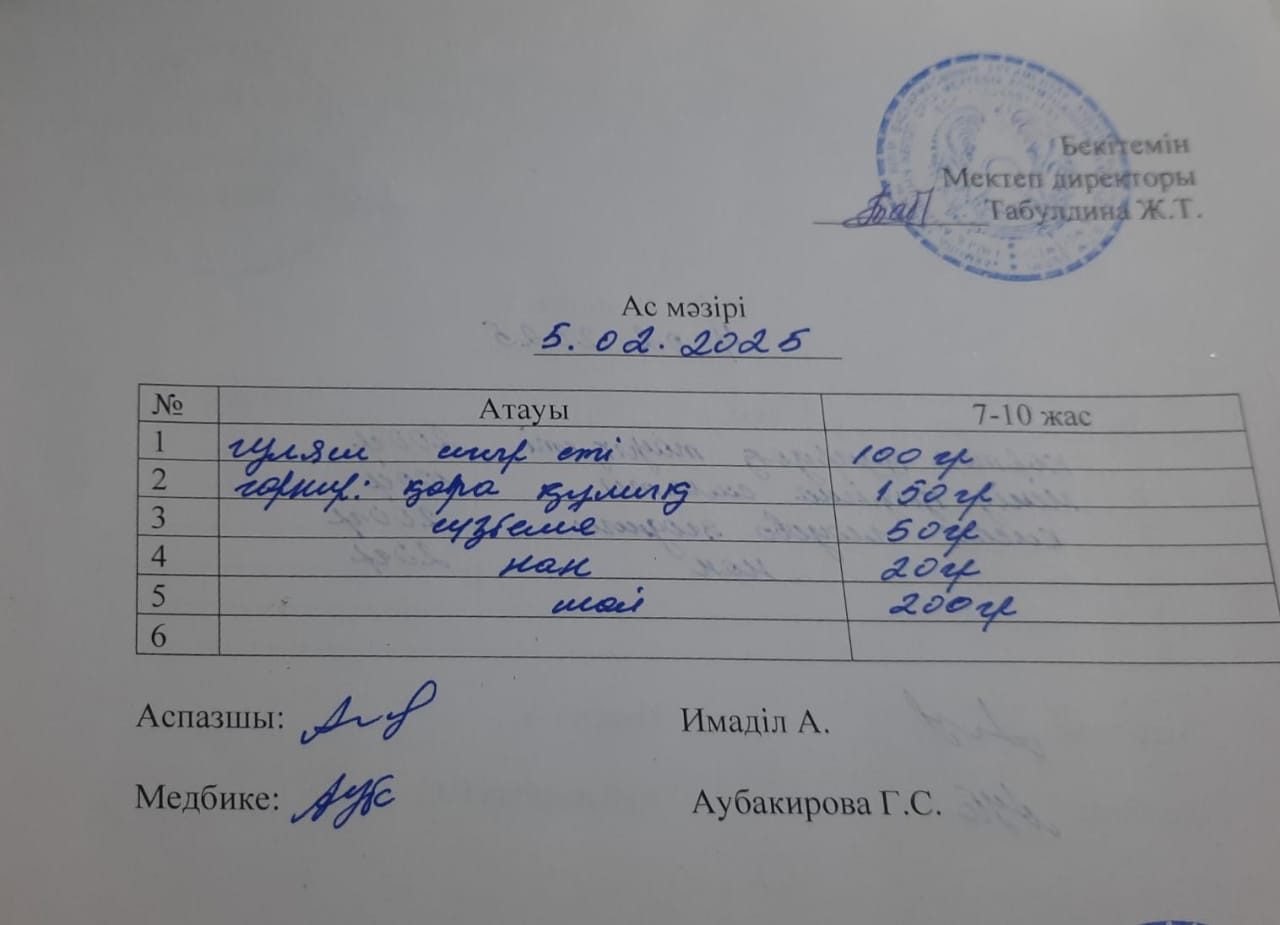 Бекітемін
Мектеп директоры
Табулдина Ж.Т.
Ас мәзірі
5.02.2025
№ Атауы 7-10 жас
1 гуляш сиыр еті 100 гр
2 гарнир: қара құмық 150гр
3 сүзбеме 50гр
4 нан 20гр
5 шай 200гр
6
Аспазшы: Имаділ А.
Медбике: Аубакирова Г.С.